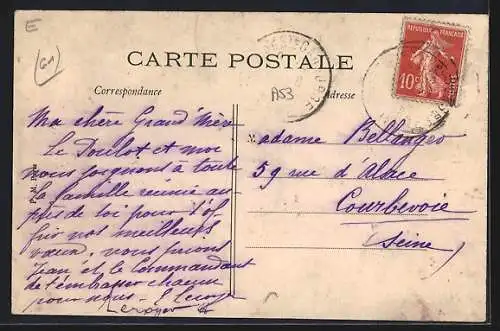 E
G1
CARTE POSTALE
A53
Correspondance
Adresse
REPUBLIQUE FRANÇAISE
10c
POSTES
Ma chère Grand'Mère
Le Doulot et moi
nous joignons à toute
la famille réunie au
près de toi pour t'of
frir nos meilleurs
vœux, nous prions
Jean et le Commandant
de t'embrasser chacun
pour nous
Madame Bellanger
59 rue d'Alsace
Courbevoie
(Seine)